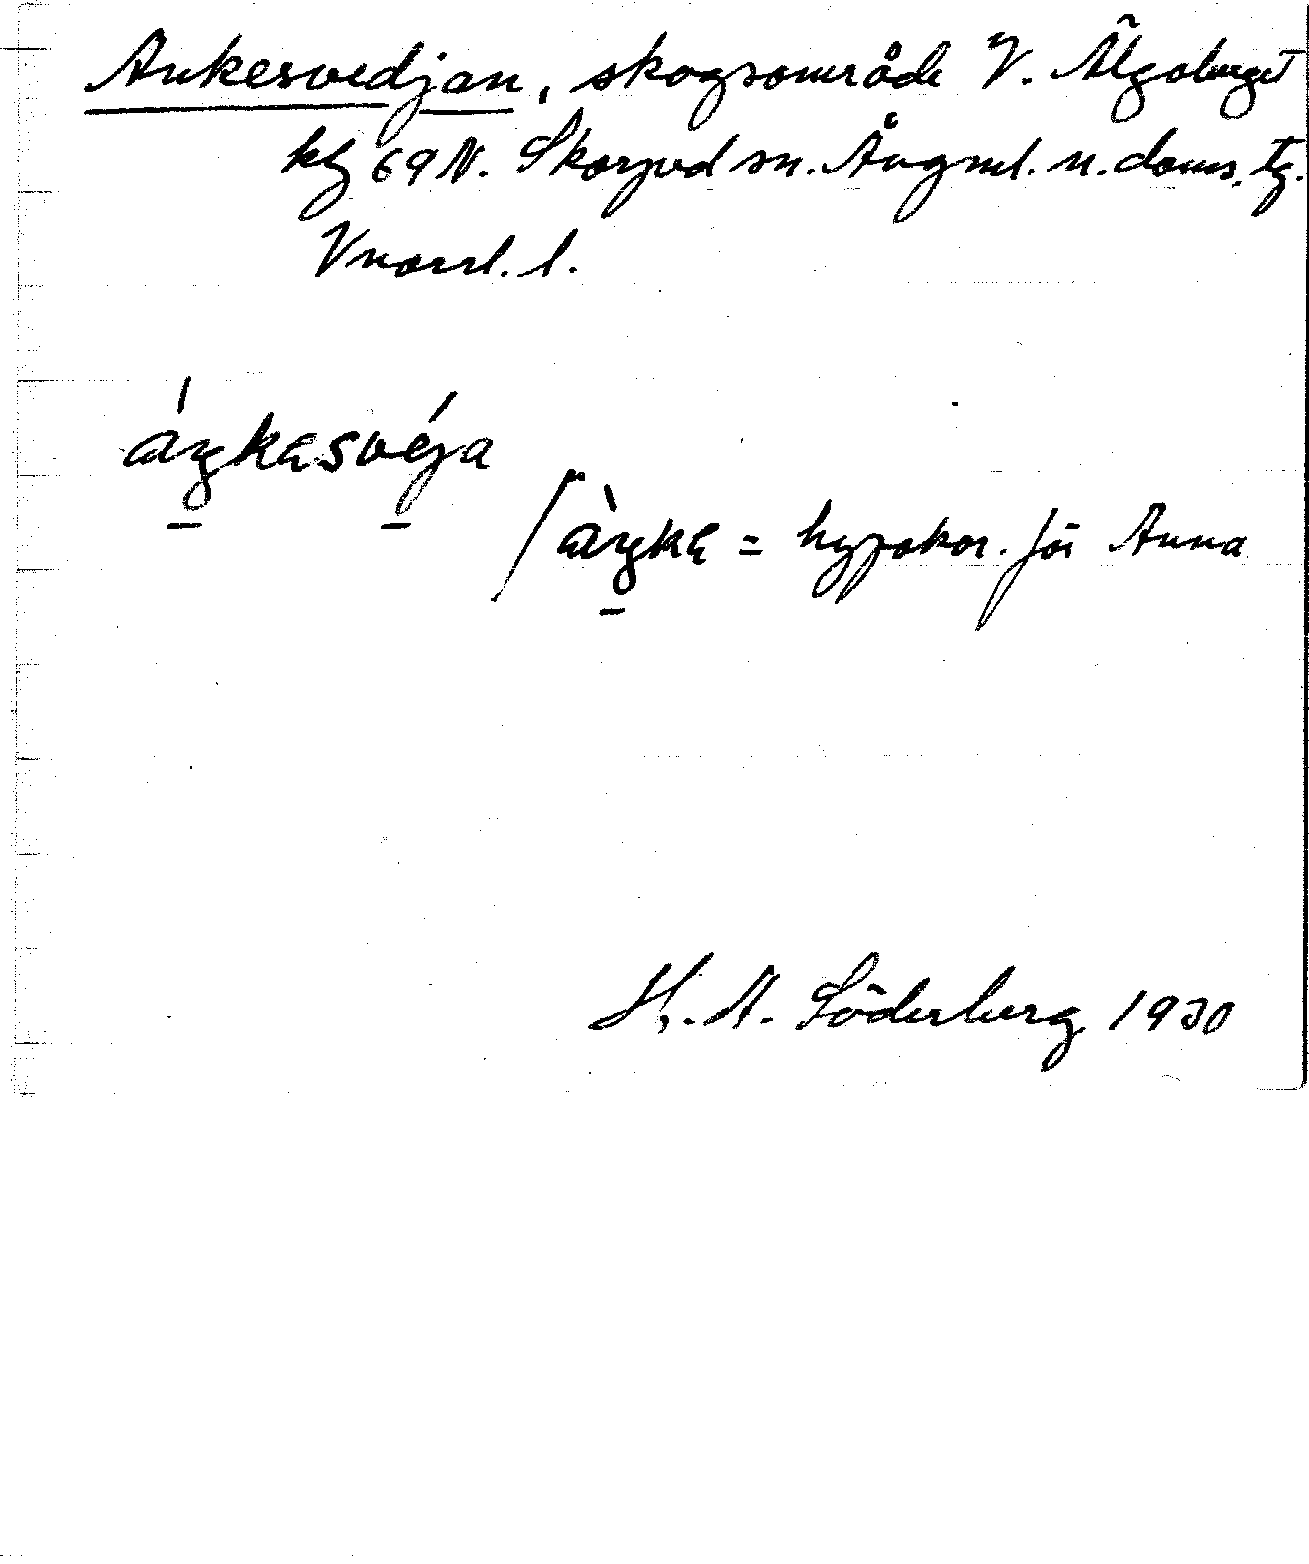 Ankesvedjan, skogsområde V. Älgaberget
kbl 69 N. Skorped sn. Ångml. n. doms. tg.
Vnorrl. l.
áŋkasvéja
/àŋka = hypokor. för Anna
H. A. Söderberg 1930